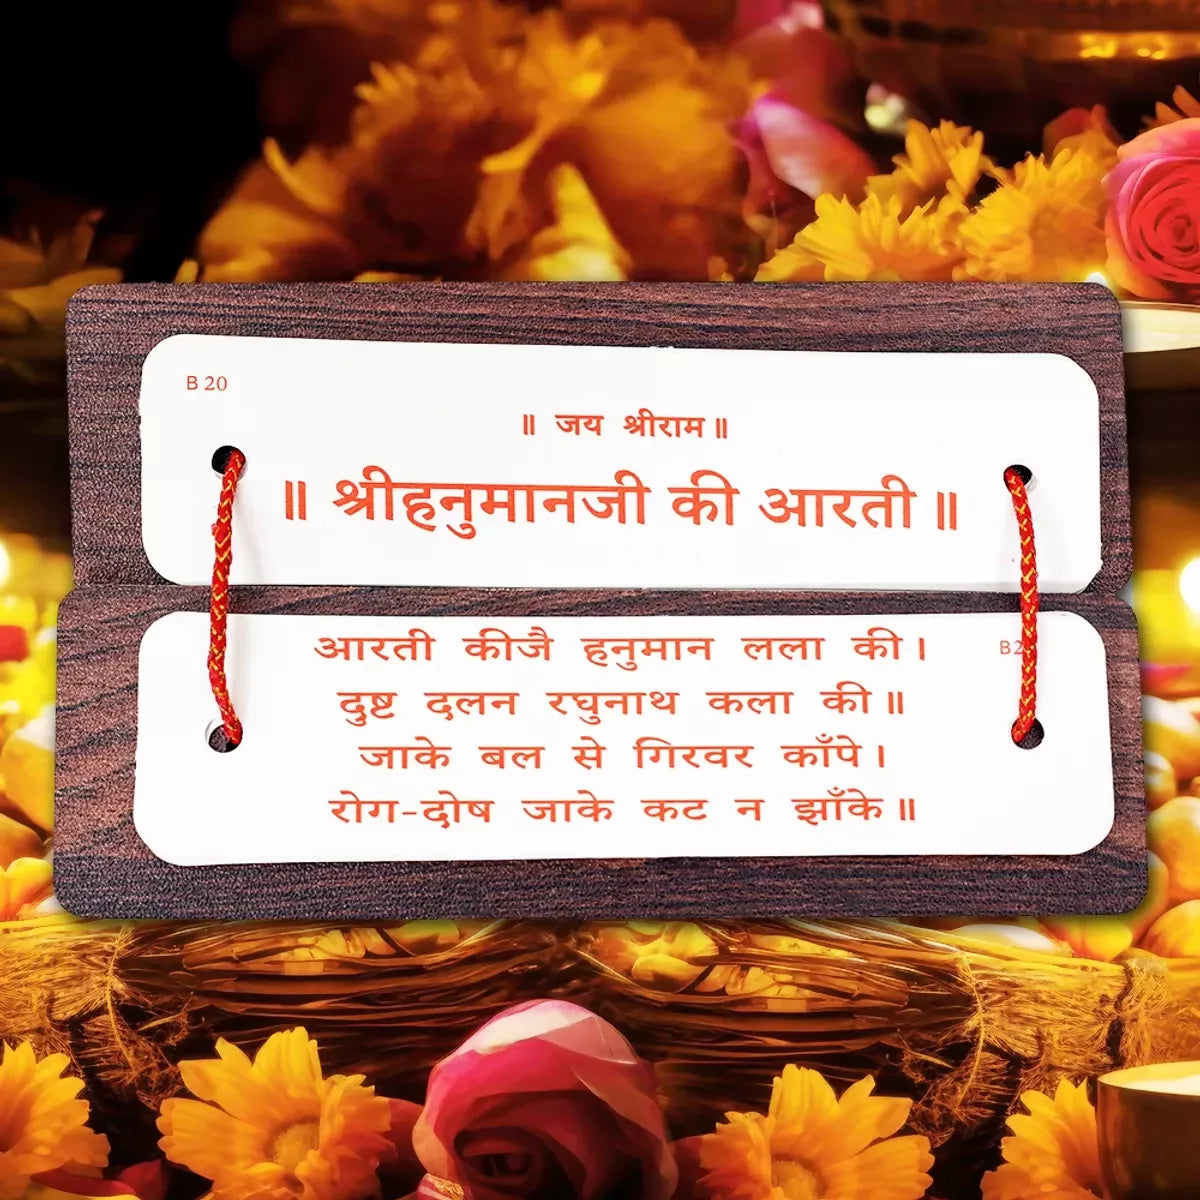 B 20
॥ जय श्रीराम ॥
॥ श्रीहनुमानजी की आरती ॥
आरती कीजै हनुमान लला की ।
दुष्ट दलन रघुनाथ कला की ॥
जाके बल से गिरवर काँपे ।
रोग-दोष जाके कट न झाँके ॥